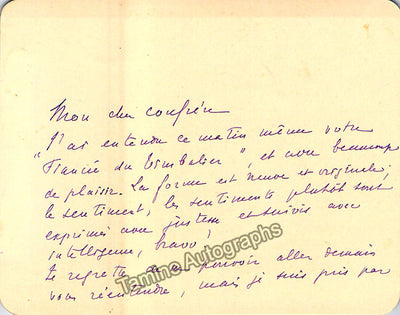 Mon cher confrère
"J'ai entendu ce matin même votre
Fiancée du Timbalier", et avec beaucoup
de plaisir. La forme est neuve et originale;
le sentiment, les sentiments plutôt sont
exprimés avec justesse et suivis avec
intelligence, bravo!
Je regrette de ne pouvoir aller demain
vous réentendre, mais je suis pris par
Tamino Autographs